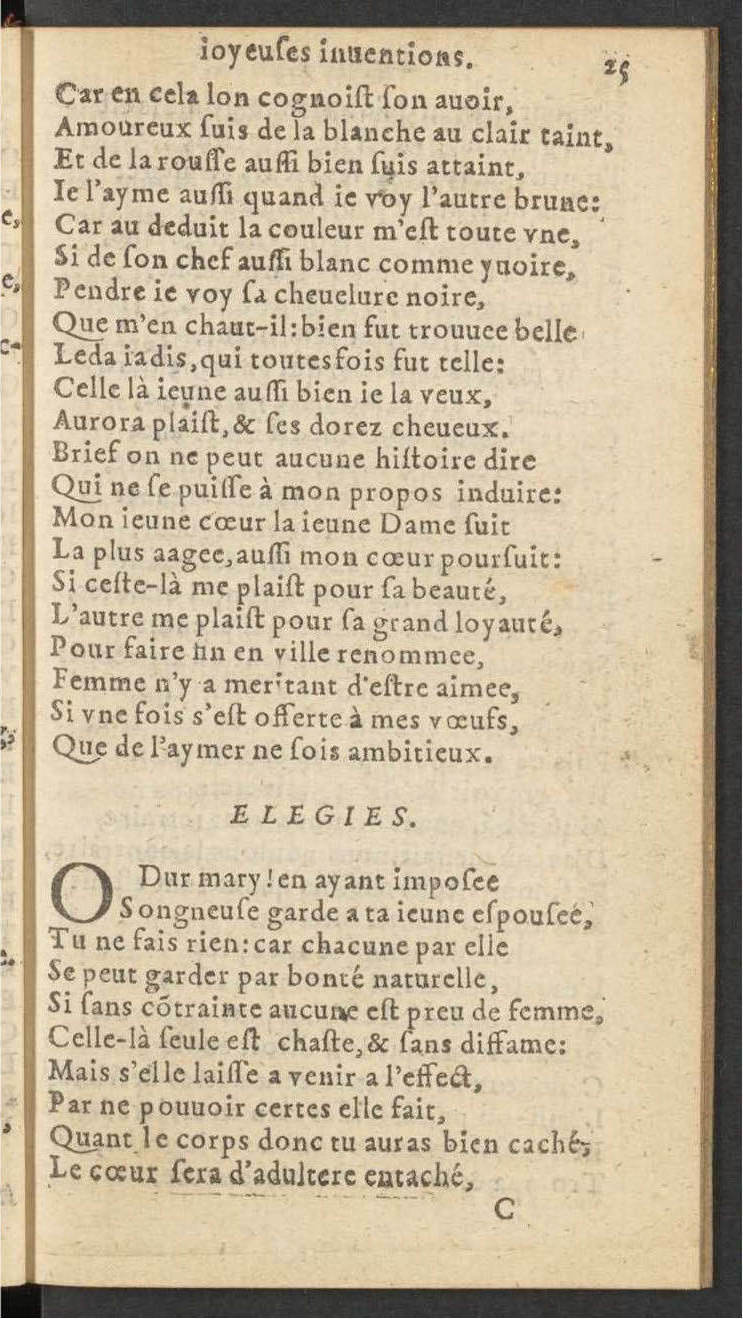 ioyeuſes inuentions. 25
Car en cela lon cognoiſt ſon auoir,
Amoureux ſuis de la blanche au clair taint,
Et de la rouſſe auſſi bien ſuis attaint,
Ie l'ayme auſſi quand ie voy l'autre brune:
Car au deduit la couleur m'eſt toute vne,
Si de ſon chef auſſi blanc comme yuoire,
Pendre ie voy ſa cheuelure noire,
Que m'en chaut-il: bien fut trouuee belle
Leda iadis, qui toutesfois fut telle:
Celle là ieune auſſi bien ie la veux,
Aurora plaiſt, & ſes dorez cheueux.
Brief on ne peut aucune hiſtoire dire
Qui ne ſe puiſſe à mon propos induire:
Mon ieune cœur la ieune Dame ſuit
La plus aagee, auſſi mon cœur pourſuit:
Si ceſte-là me plaiſt pour ſa beauté,
L'autre me plaiſt pour ſa grand loyauté,
Pour faire fin en ville renommee,
Femme n'y a meritant d'eſtre aimee,
Si vne fois s'eſt offerte à mes vœufs,
Que de l'aymer ne ſois ambitieux.
ELEGIES.
O Dur mary! en ayant impoſee
Songneuſe garde a ta ieune eſpouſeé,
Tu ne fais rien: car chacune par elle
Se peut garder par bonté naturelle,
Si ſans cõtrainte aucune eſt preu de femme,
Celle-là ſeule eſt chaſte, & ſans diffame:
Mais s'elle laiſſe a venir a l'effect,
Par ne pouuoir certes elle fait,
Quant le corps donc tu auras bien caché,
Le cœur ſera d'adultere entaché,
C